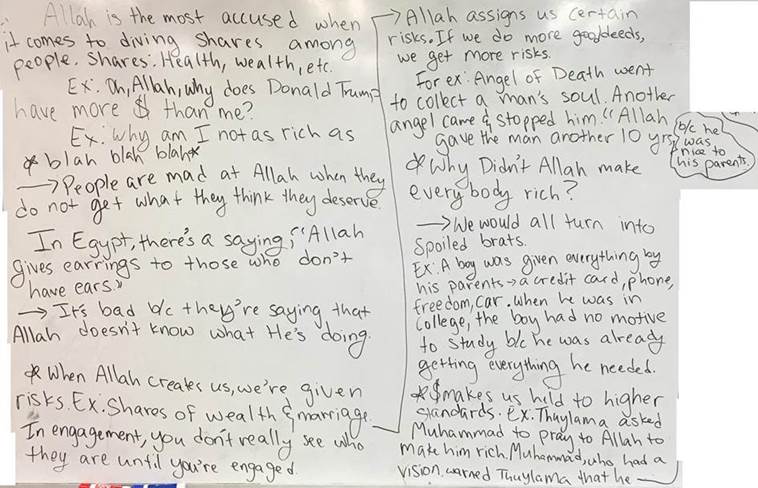 Allah is the most accused when
it comes to diving shares among
people. Shares: Health, wealth, etc.
Ex: Oh, Allah, why does Donald Trump
have more $ than me?
Ex: Why am I not as rich as
*blah blah blah*
→ People are mad at Allah when they
do not get what they think they deserve.
In Egypt, there's a saying, "Allah
gives earrings to those who don't
have ears."
→ It's bad b/c they're saying that
Allah doesn't know what He's doing.
* When Allah creates us, we're given
risks. Ex: Shares of wealth & marriage.
In engagement, you don't really see who
they are until you're engaged.
→ Allah assigns us certain
risks. If we do more good deeds,
we get more risks.
For ex: Angel of Death went
to collect a man's soul. Another
angel came & stopped him. "Allah
gave the man another 10 yrs
b/c he
was
nice to
his parents.
* Why Didn't Allah make
everybody rich?
→ We would all turn into
spoiled brats.
Ex: A boy was given everything by
his parents → a credit card, phone,
freedom, car. When he was in
college, the boy had no motive
to study b/c he was already
getting everything he needed.
* $ makes us held to higher
standards. Ex. Thuylama asked
Muhammad to pray to Allah to
make him rich. Muhammad, who had a
vision, warned Thuylama that he